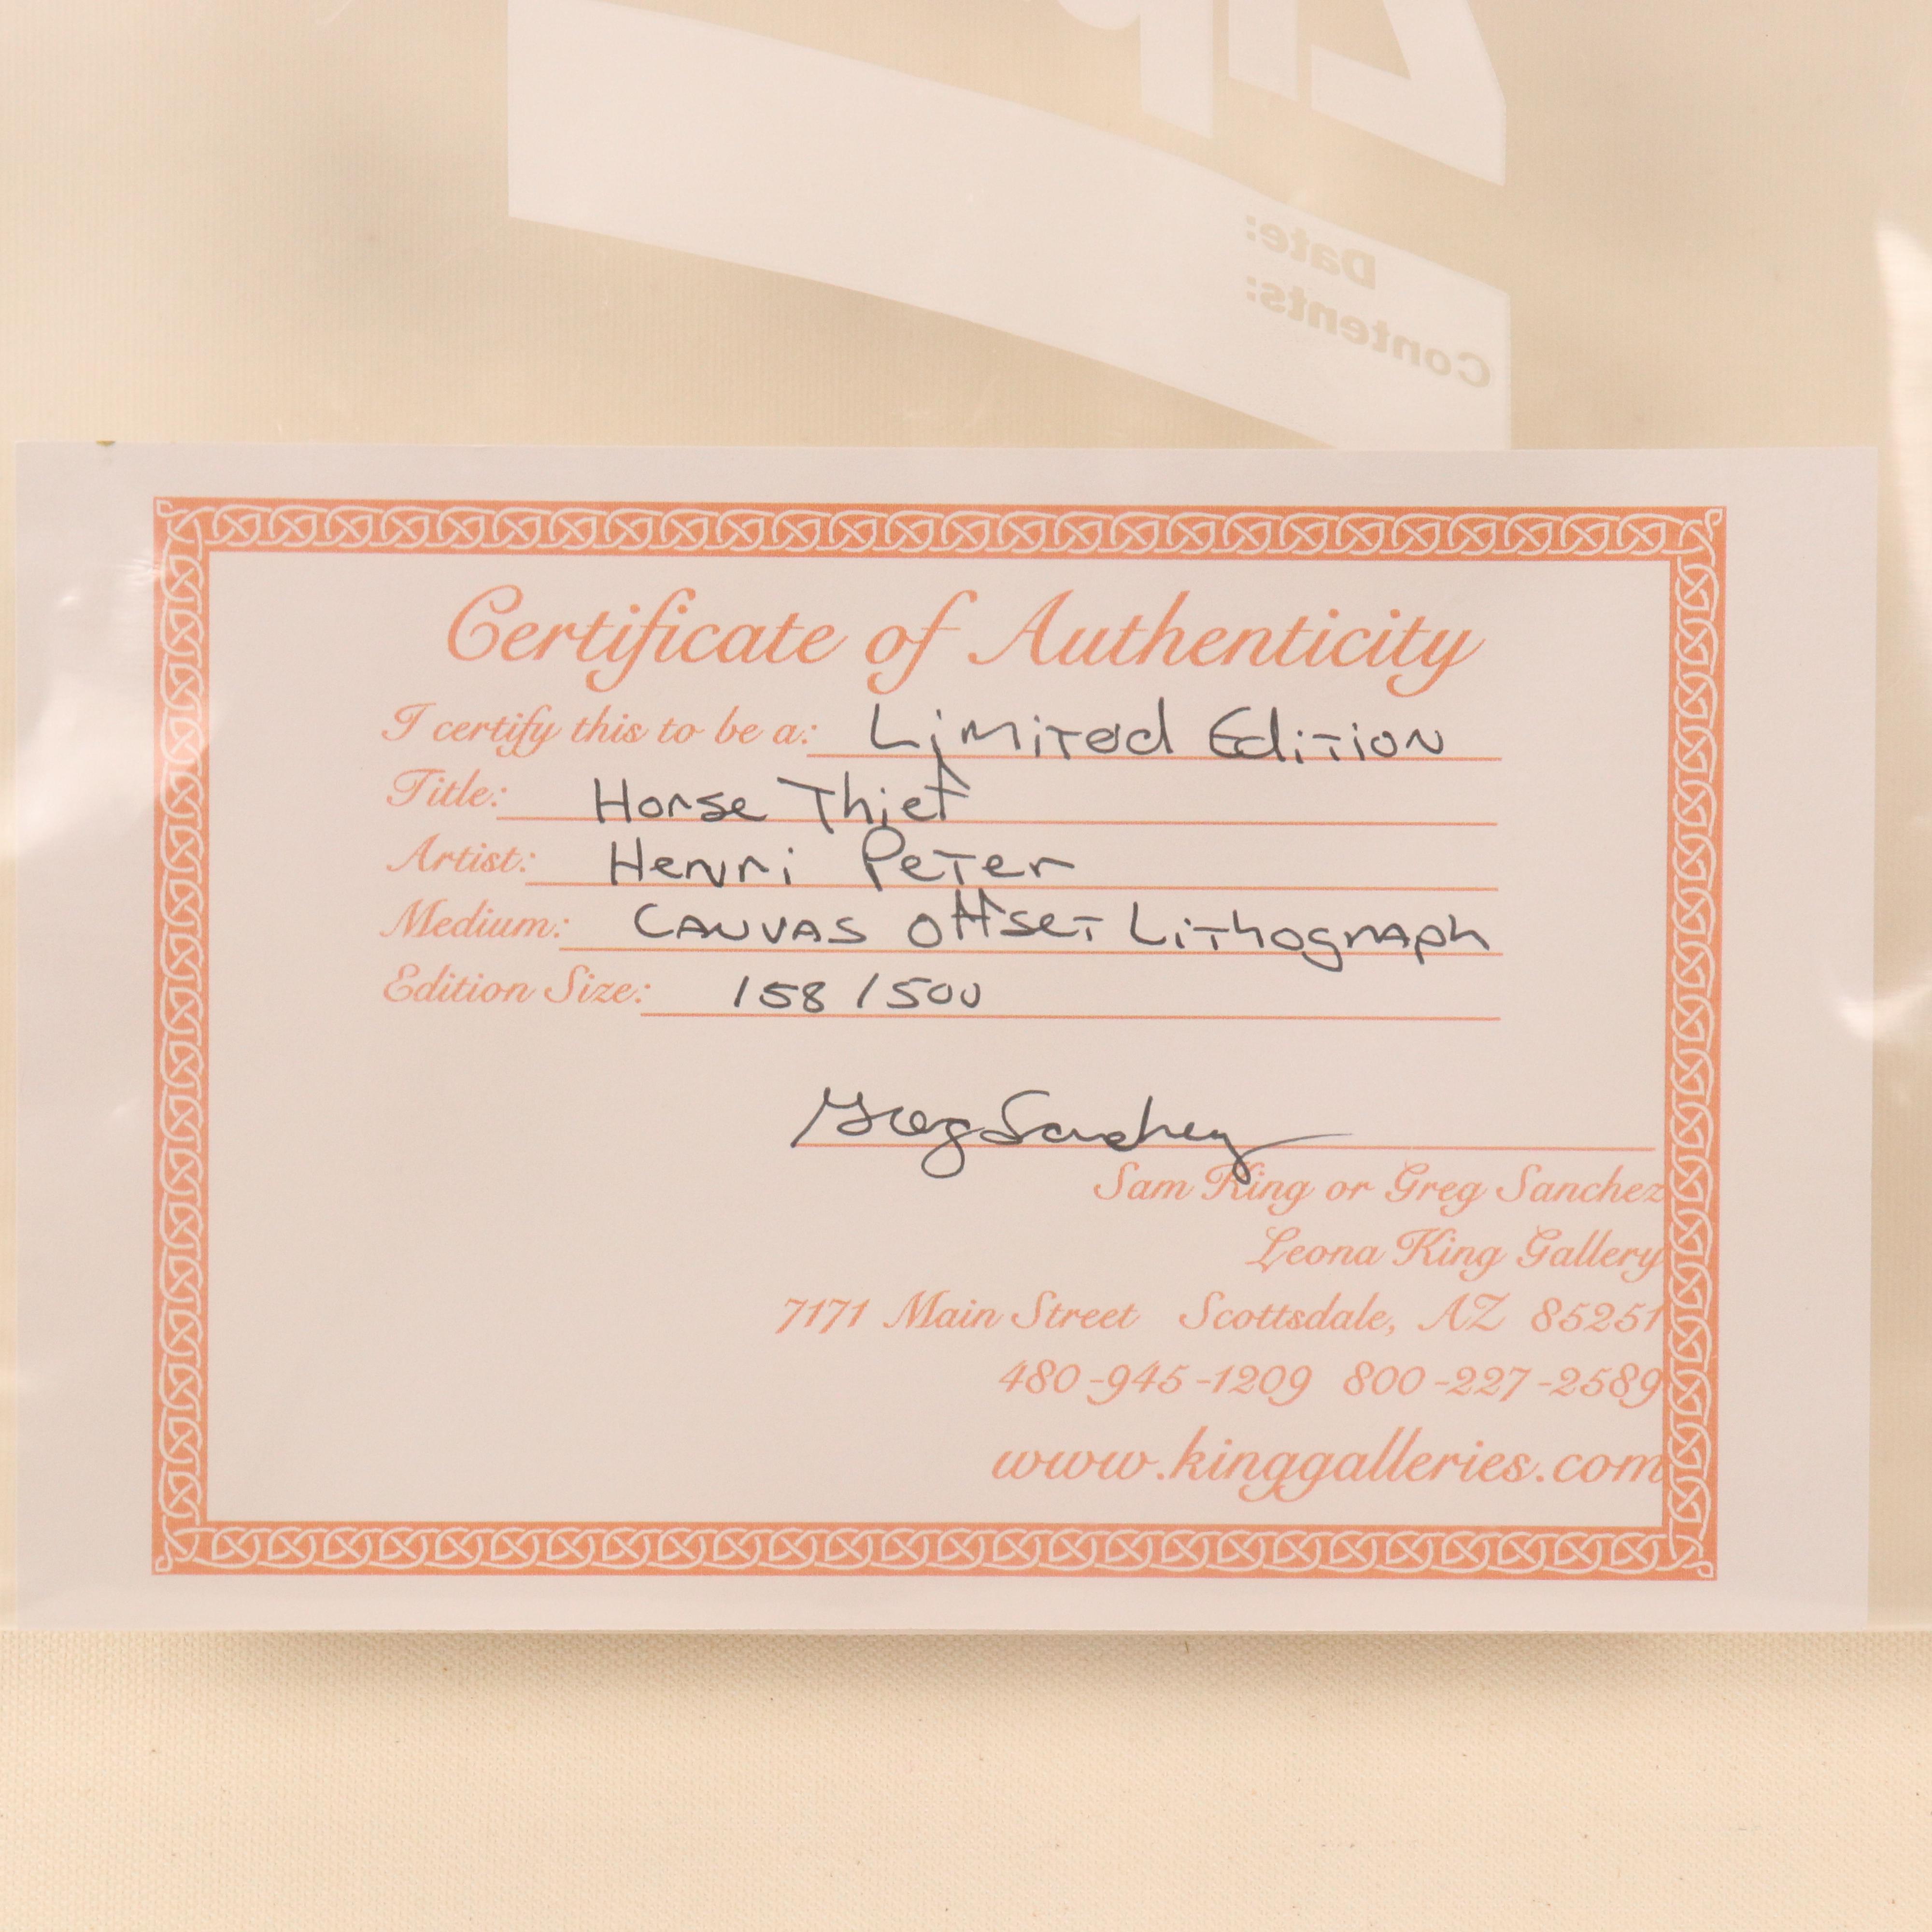 ZIP
Date:
Contents:
Certificate of Authenticity
I certify this to be a: Limited Edition
Title: Horse Thief
Artist: Henri Peter
Medium: Canvas Offset Lithograph
Edition Size: 158/500
Greg Sanchez
Sam King or Greg Sanchez
Leona King Gallery
7171 Main Street Scottsdale, AZ 85251
480-945-1209 800-227-2589
www.kinggalleries.com